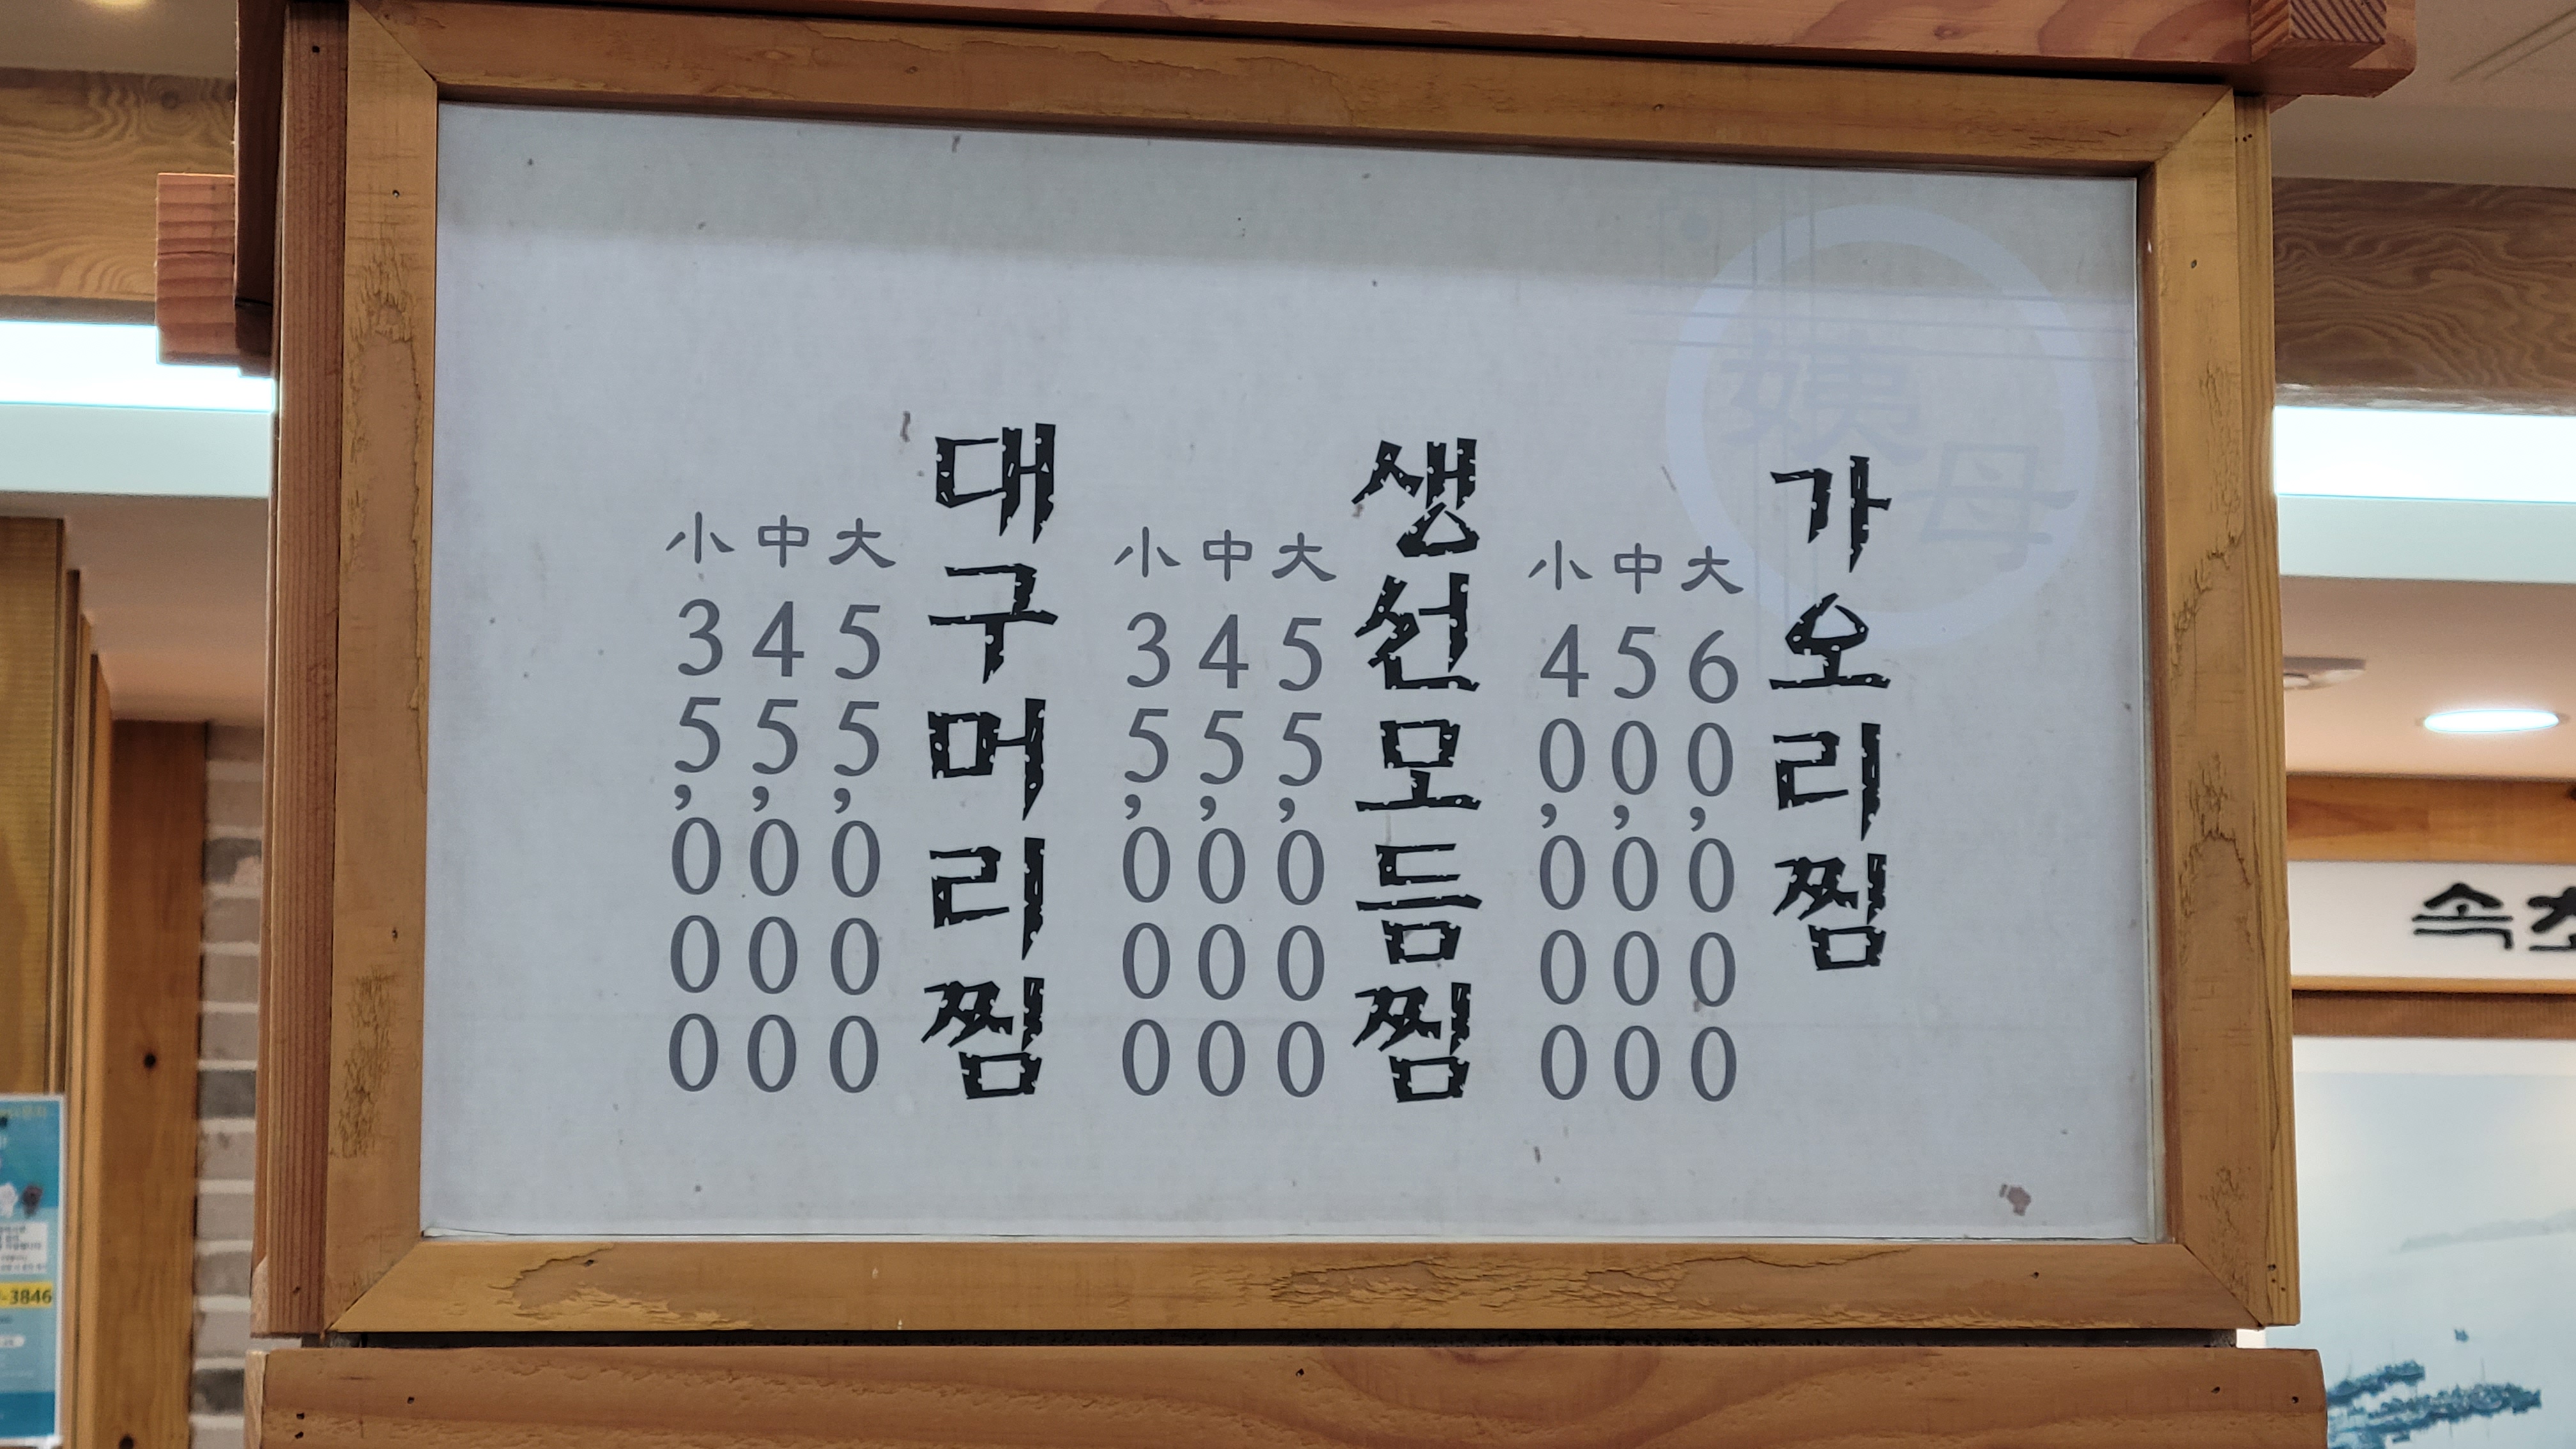 가오리찜
大 60,000
中 50,000
小 40,000
생선모듬찜
大 55,000
中 45,000
小 35,000
대구머리찜
大 55,000
中 45,000
小 35,000
姨母
속초
-3846